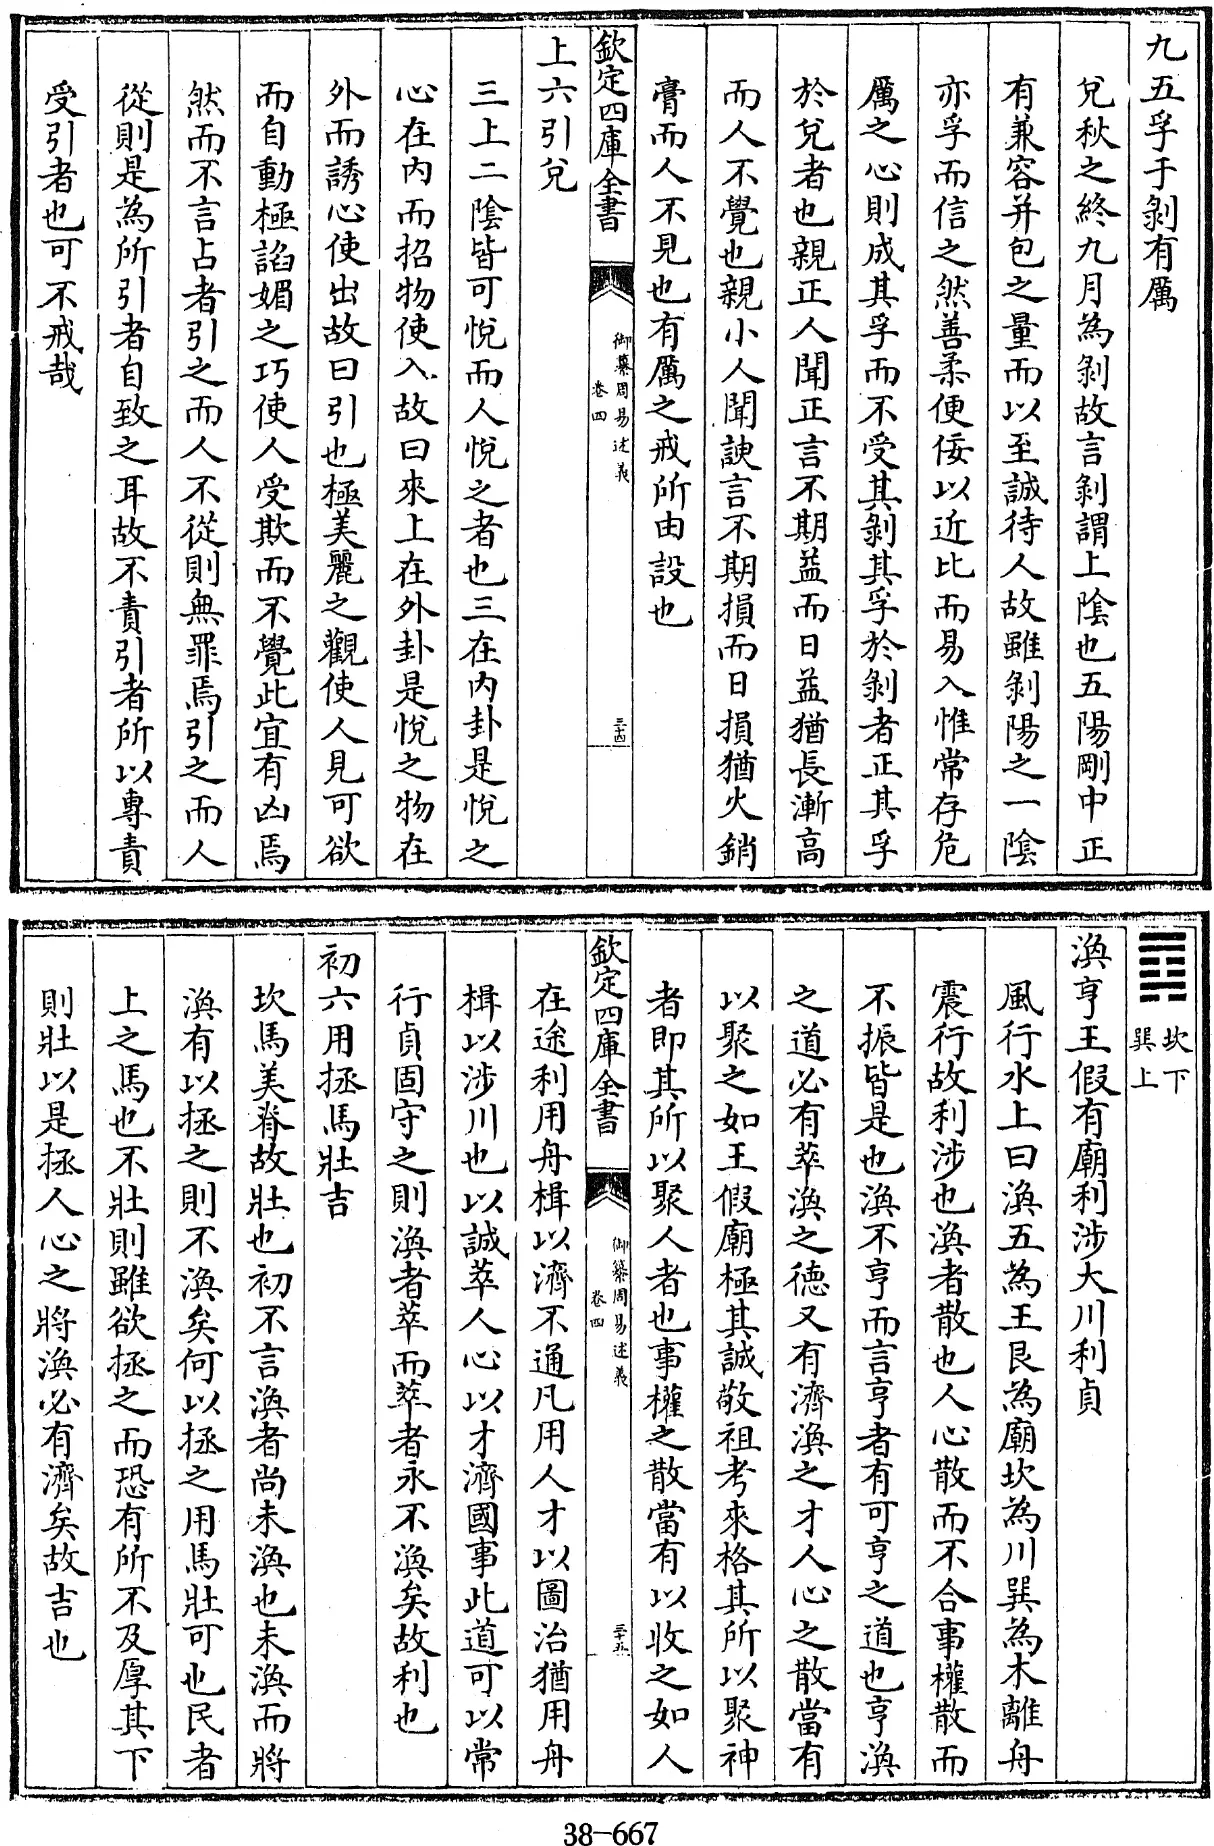 九五孚于剝有厲
兌秋之終九月為剝故言剝謂上陰也五陽剛中正
有兼容并包之量而以至誠待人故雖剝陽之一陰
亦孚而信之然善柔便佞以近比而易入惟常存危
厲之心則成其孚而不受其剝其孚於剝者正其孚
於兌者也親正人聞正言不期益而日益猶長漸高
而人不覺也親小人聞諛言不期損而日損猶火銷
膏而人不見也有厲之戒所由設也
欽定四庫全書
御纂周易述義
卷四
三十四
上六引兌
三上二陰皆可悅而人悅之者也三在内卦是悅之
心在内而招物使入故曰來上在外卦是悅之物在
外而誘心使出故曰引也極美麗之觀使人見可欲
而自動極諂媚之巧使人受欺而不覺此宜有凶焉
然而不言占者引之而人不從則無罪焉引之而人
從則是為所引者自致之耳故不責引者所以專責
受引者也可不戒哉
坎下
巽上
渙亨王假有廟利涉大川利貞
風行水上曰渙五為王艮為廟坎為川巽為木離舟
震行故利涉也渙者散也人心散而不合事權散而
不振皆是也渙不亨而言亨者有可亨之道也亨渙
之道必有萃渙之德又有濟渙之才人心之散當有
以聚之如王假廟極其誠敬祖考來格其所以聚神
者即其所以聚人者也事權之散當有以收之如人
欽定四庫全書
御纂周易述義
卷四
三十五
在途利用舟楫以濟不通凡用人才以圖治猶用舟
楫以涉川也以誠萃人心以才濟國事此道可以常
行貞固守之則渙者萃而萃者永不渙矣故利也
初六用拯馬壯吉
坎馬美脊故壯也初不言渙者尚未渙也未渙而將
渙有以拯之則不渙矣何以拯之用馬壯可也民者
上之馬也不壯則雖欲拯之而恐有所不及厚其下
則壯以是拯人心之將渙必有濟矣故吉也
38-667